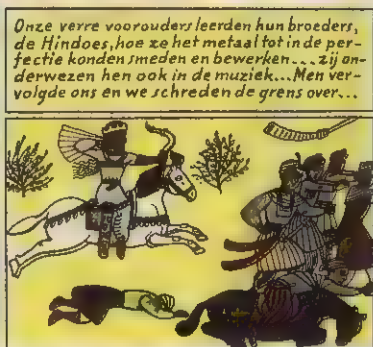 Onze verre voorouders leerden hun broeders,
de Hindoes, hoe ze het metaal tot in de per-
fectie konden smeden en bewerken... zij on-
derwezen hen ook in de muziek... Men ver-
volgde ons en we schreden de grens over...